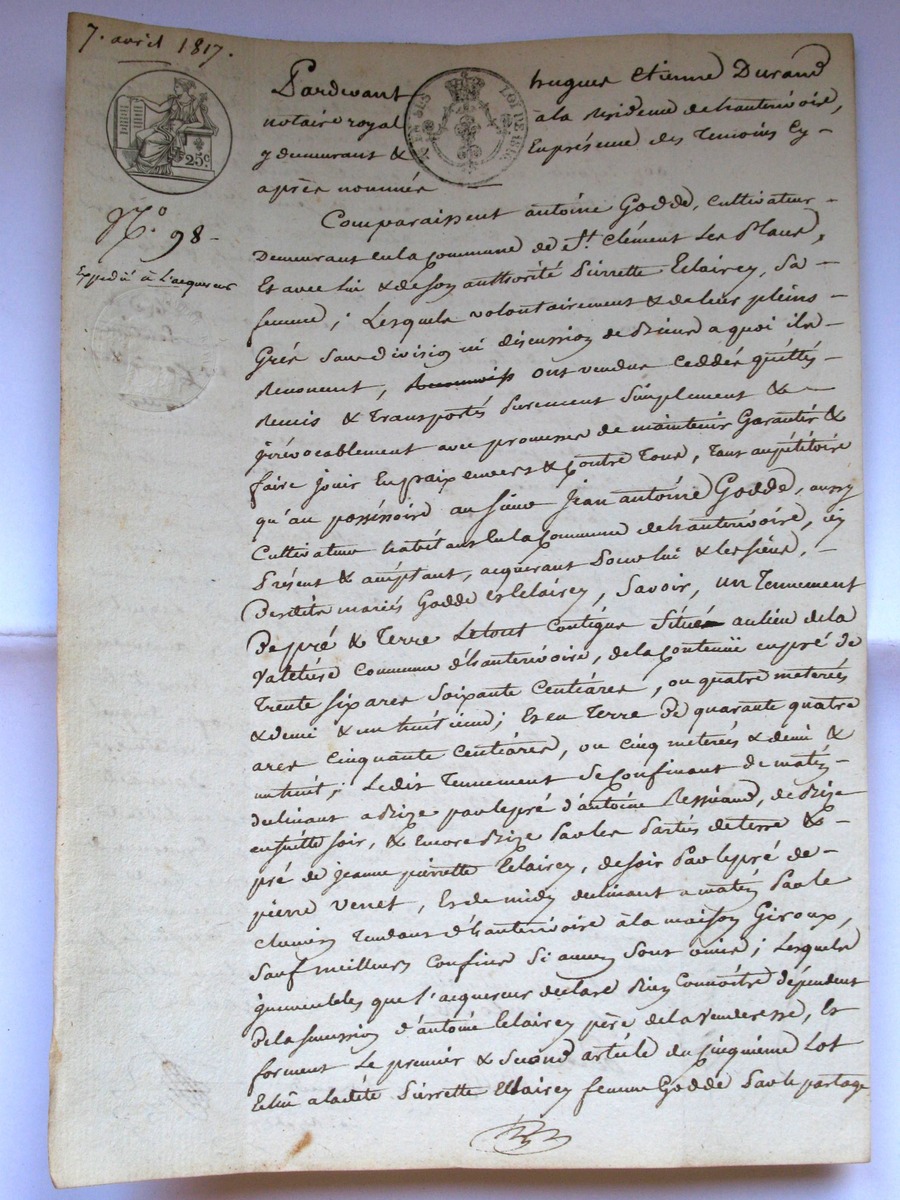 7. avril 1817.
Pardevant hugues Etienne Durand
notaire royal à la Residence de hauterivoire,
y demeurant & En présence des Temoins Cy-
après nommés
LOI DE 1816
25c
N.° 98-
Expédié à L'acquereur
Comparaissent antoine Godde, cultivateur-
Demeurant en la Commune de St. Clément Les Places,
Et avec lui & de son authorité Pierrette Leclairey, Sa
femme; Lesquels volontairement & de leur pleins-
Grés Sans division ni discussion de Biens a quoi ils-
Renoncent, ont vendus Ceddés quittés
Remis & Transportés Purement Simplement &-
jrrévocablement avec promesse de maintenir Garantir &
faire jouir En paix envers & Contre Tous, Tant au pétitoire
qu'au possessoire au Sieur Jean antoine Godde, aussy
Cultivateur habitant En la Commune de hauterivoire, icy
Présent & acceptant, acquerant Pour lui & les Siens,-
Desdits mariés Godde et leclairey, Savoir, un Tennement
De pré & Terre Le tout Contigue Situé au lieu de la
Valetiere Commune d'hauterivoire, de la Contenüe en pré de
Trente Six ares Soixante Centiares, ou quatre meterées
& demi & un huitième; Et en Terre De quarante quatre
ares Cinquante Centiares, ou Cinq meterées & demi &
un huit; Ledit Tennement Se Confinant de matin-
declinant a Bize par le pré d'antoine, de Bize
ensuitte soir, & Encore Bize Par les Parties de terre &-
pré de jeanne pierrette leclairey, de soir Par le pré de-
pierre Venet, Et de midy declinant a matin Par le
chemin Tendant d'hauterivoire à la maison Giroux,
Sauf meilleurs Confins Si aucuns Sont omis; Lesquels
jmmeubles que l'acquereur declare Bien Connoitre dépendent
De la Succession d'antoine leclairey père de la Venderesse, Et
forment Le premier & Second article du Cinquième Lot
Echu a ladite Pierrette leclairey femme Godde Par le partage